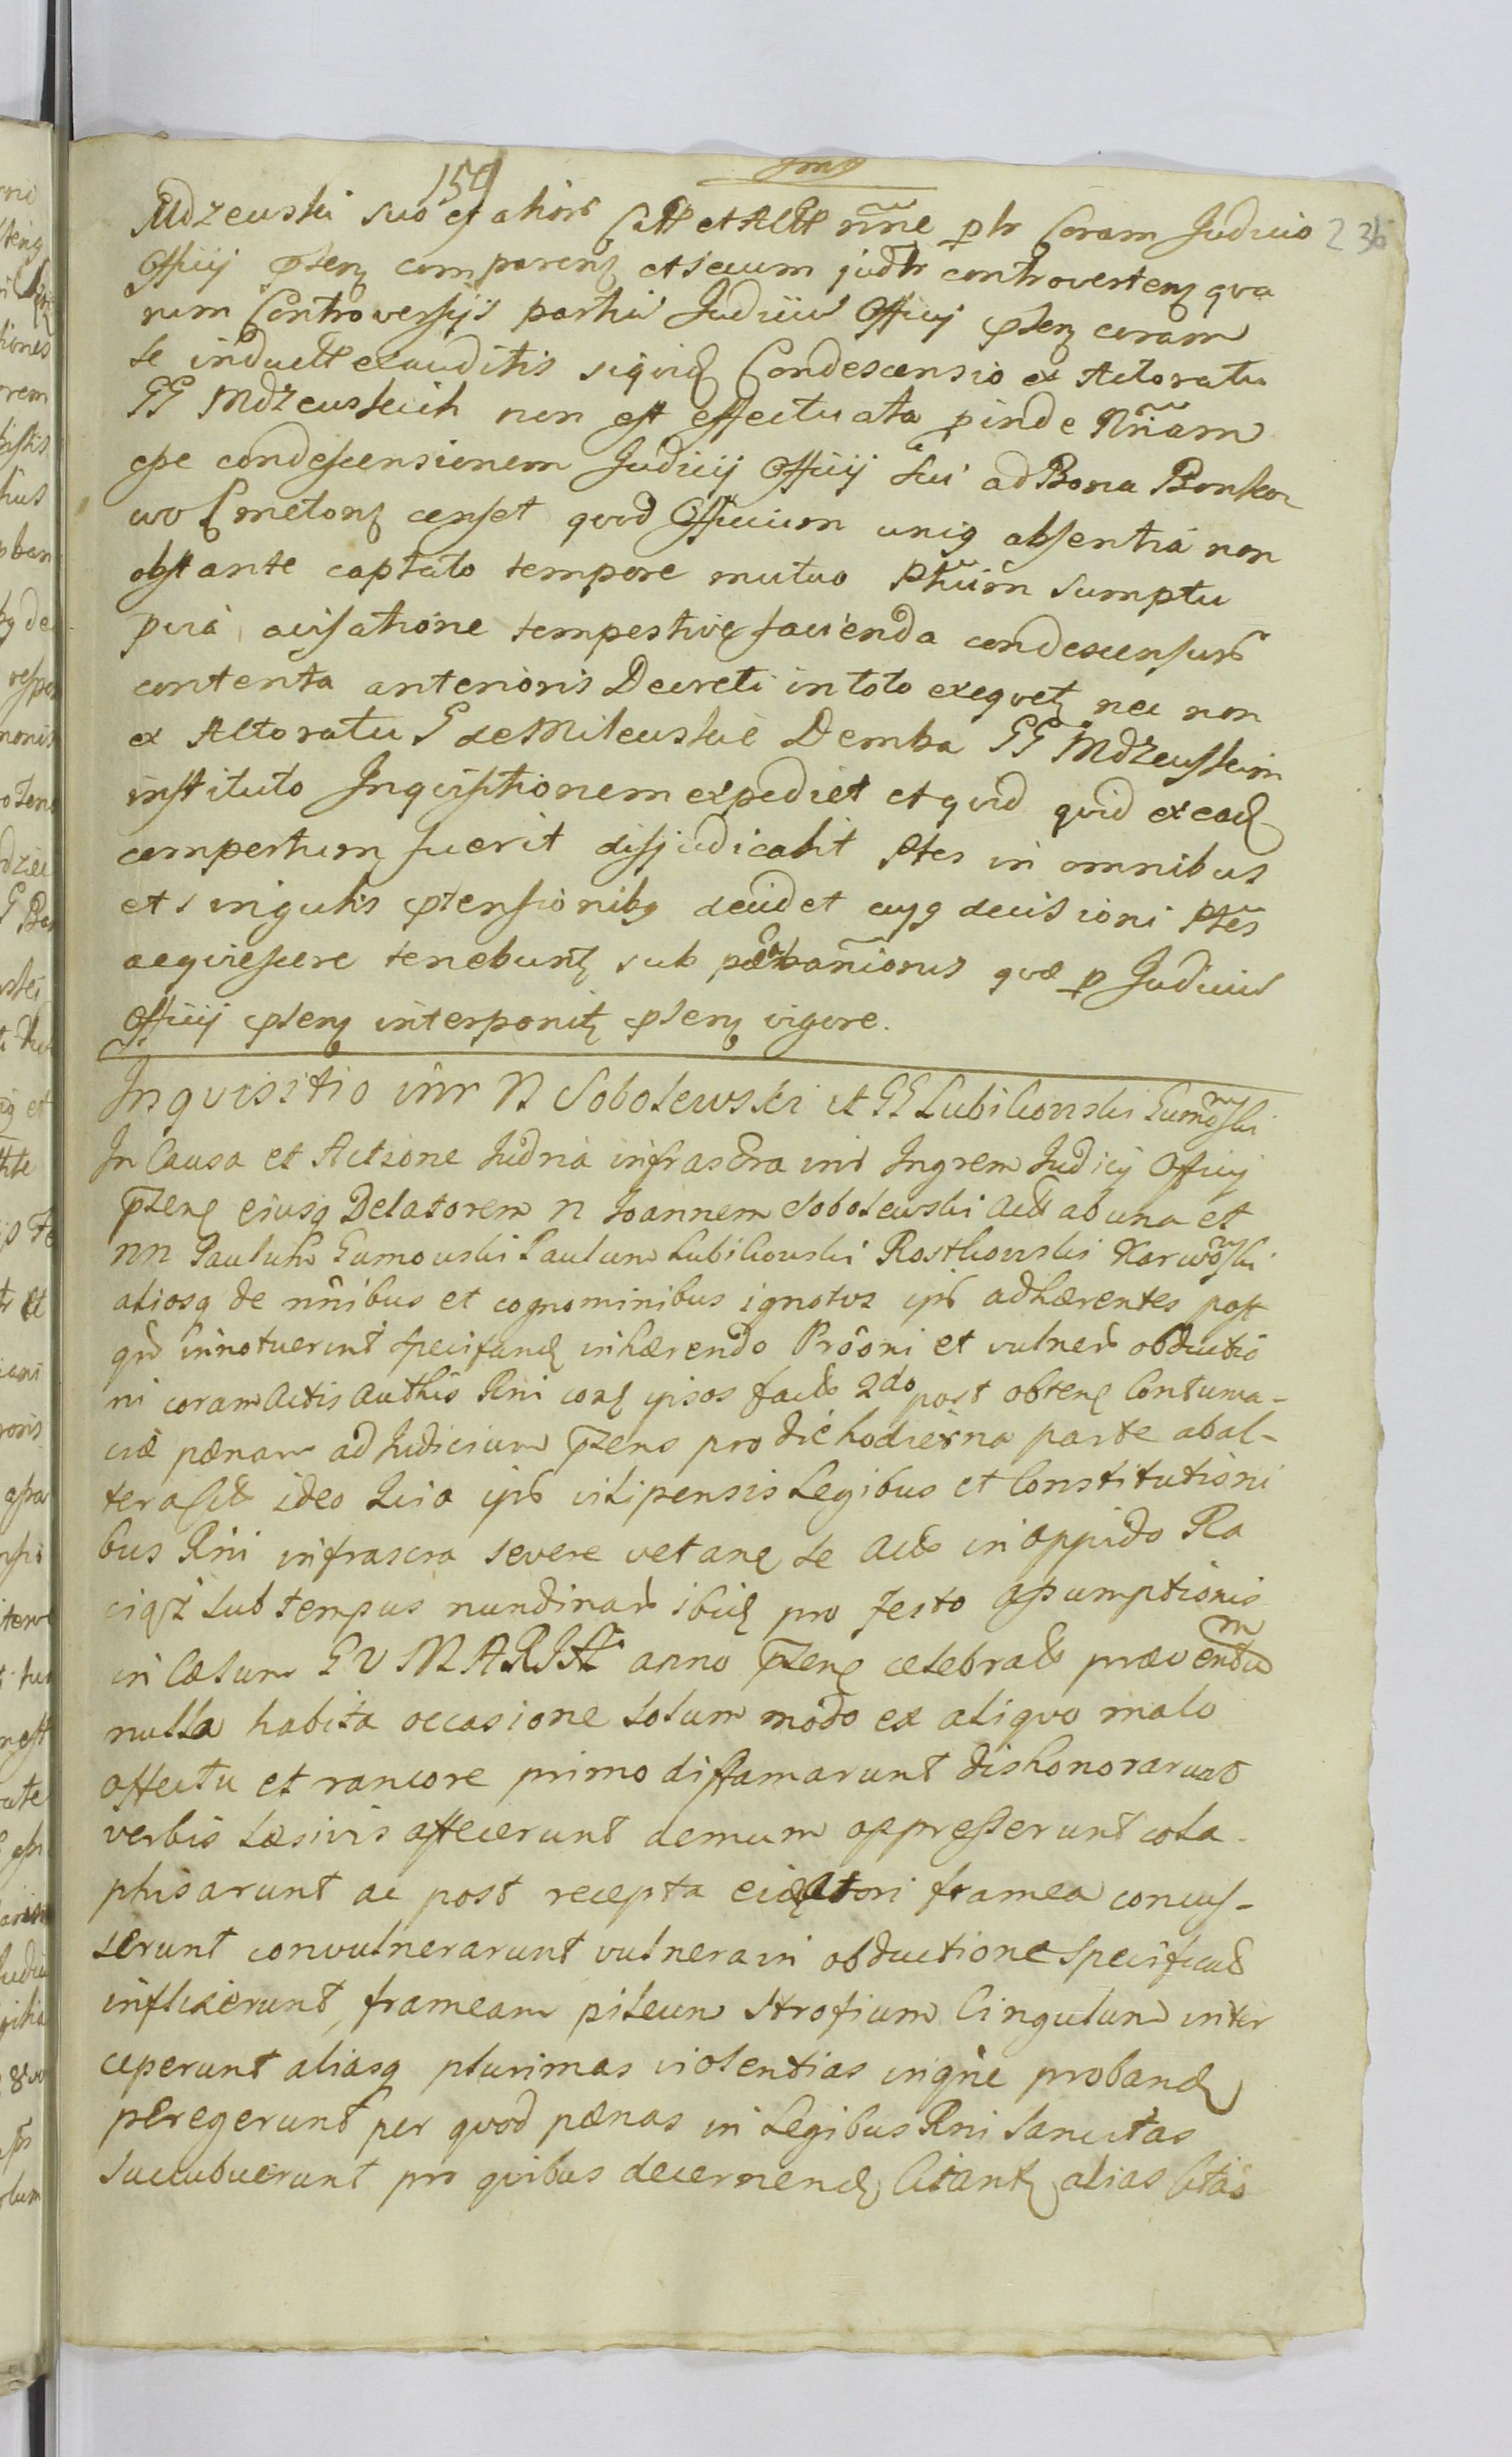 159
236
Mdzewski suo et alior Citt et Alltt nne ptr Coram Judicio
Officij pten comparen et secum judtr controverten qva
rum Controversijs partiu Judiciu Officij pten coram
se inductt exauditis siqvid Condescensio ex Actoratu
GG Mdzewskich non est effectuata pinde Nriam
esse condescensionem Judicij Officij sui ad Bona Bonko
wo Smeton censet qvod Officium uniq absentia non
obstante captato tempore mutuo Ptium sumptu
pvia avisatione tempestive facienda condescensur
contenta anterioris Decreti in toto exeqvet nec non
ex Actoratu G de Milewskie Demba GG Mdzewskim
instituto Inqvisitionem expediet et qvid qvid ex ead
compertum fuerit disjudicabit Ptes in omnibus
et singulis ptensionibq decidet cujq decisioni Ptes
acqviescere tenebunt sub banionis qvæ p Judiciu
Officij pten interponit pten vigore.
Inqvisitio intr N Sobolewski et GG Lubikowski Gumowski
In Causa et Actione Judria infrascra intr Ingrem Judicij Officij
pten ejusq Delatorem N Joannem Sobolewski Act ab una et
NN Paulum Gumowski Paulum Lubikowski Rostkowski Karwowski
aliosq de nnibus et cognominibus ignotos ipis adhærentes post
qd innotuerint specifcand inhærendo Proöni et vulner obductio
ni coram Actis Authis Rni cora ipsos fact 2do post obten Contuma-
ciæ pænam ad Judicium ptens pro die hodierna parte ab al-
tera Citt ideo Qvia ipsi vilipensis Legibus et Constitutioni
bus Rni infrascra severe vetan se Act in oppido Ra
ciqz sub tempus nundinar ibid pro festo Assumptionis
in Cælum G V MARIÆ anno pten celebrat præventum
nulla habita occasione solum modo ex aliqvo malo
affectu et rancore primo diffamarunt dishonorarunt
verbis læsivis affecerunt demum oppresserunt cola-
phisarunt ac post recepta eid Actori framea concus-
serunt convulnerarunt vulnera in obductione specificat
inflixerunt, frameam pileum strofium Cingulum inter
ceperunt aliasq plurimas violentias inqne proband
peregerunt per qvod pænas in Legibus Rni sancitas
succubuerunt pro qvibus decernend Citant alias Citas